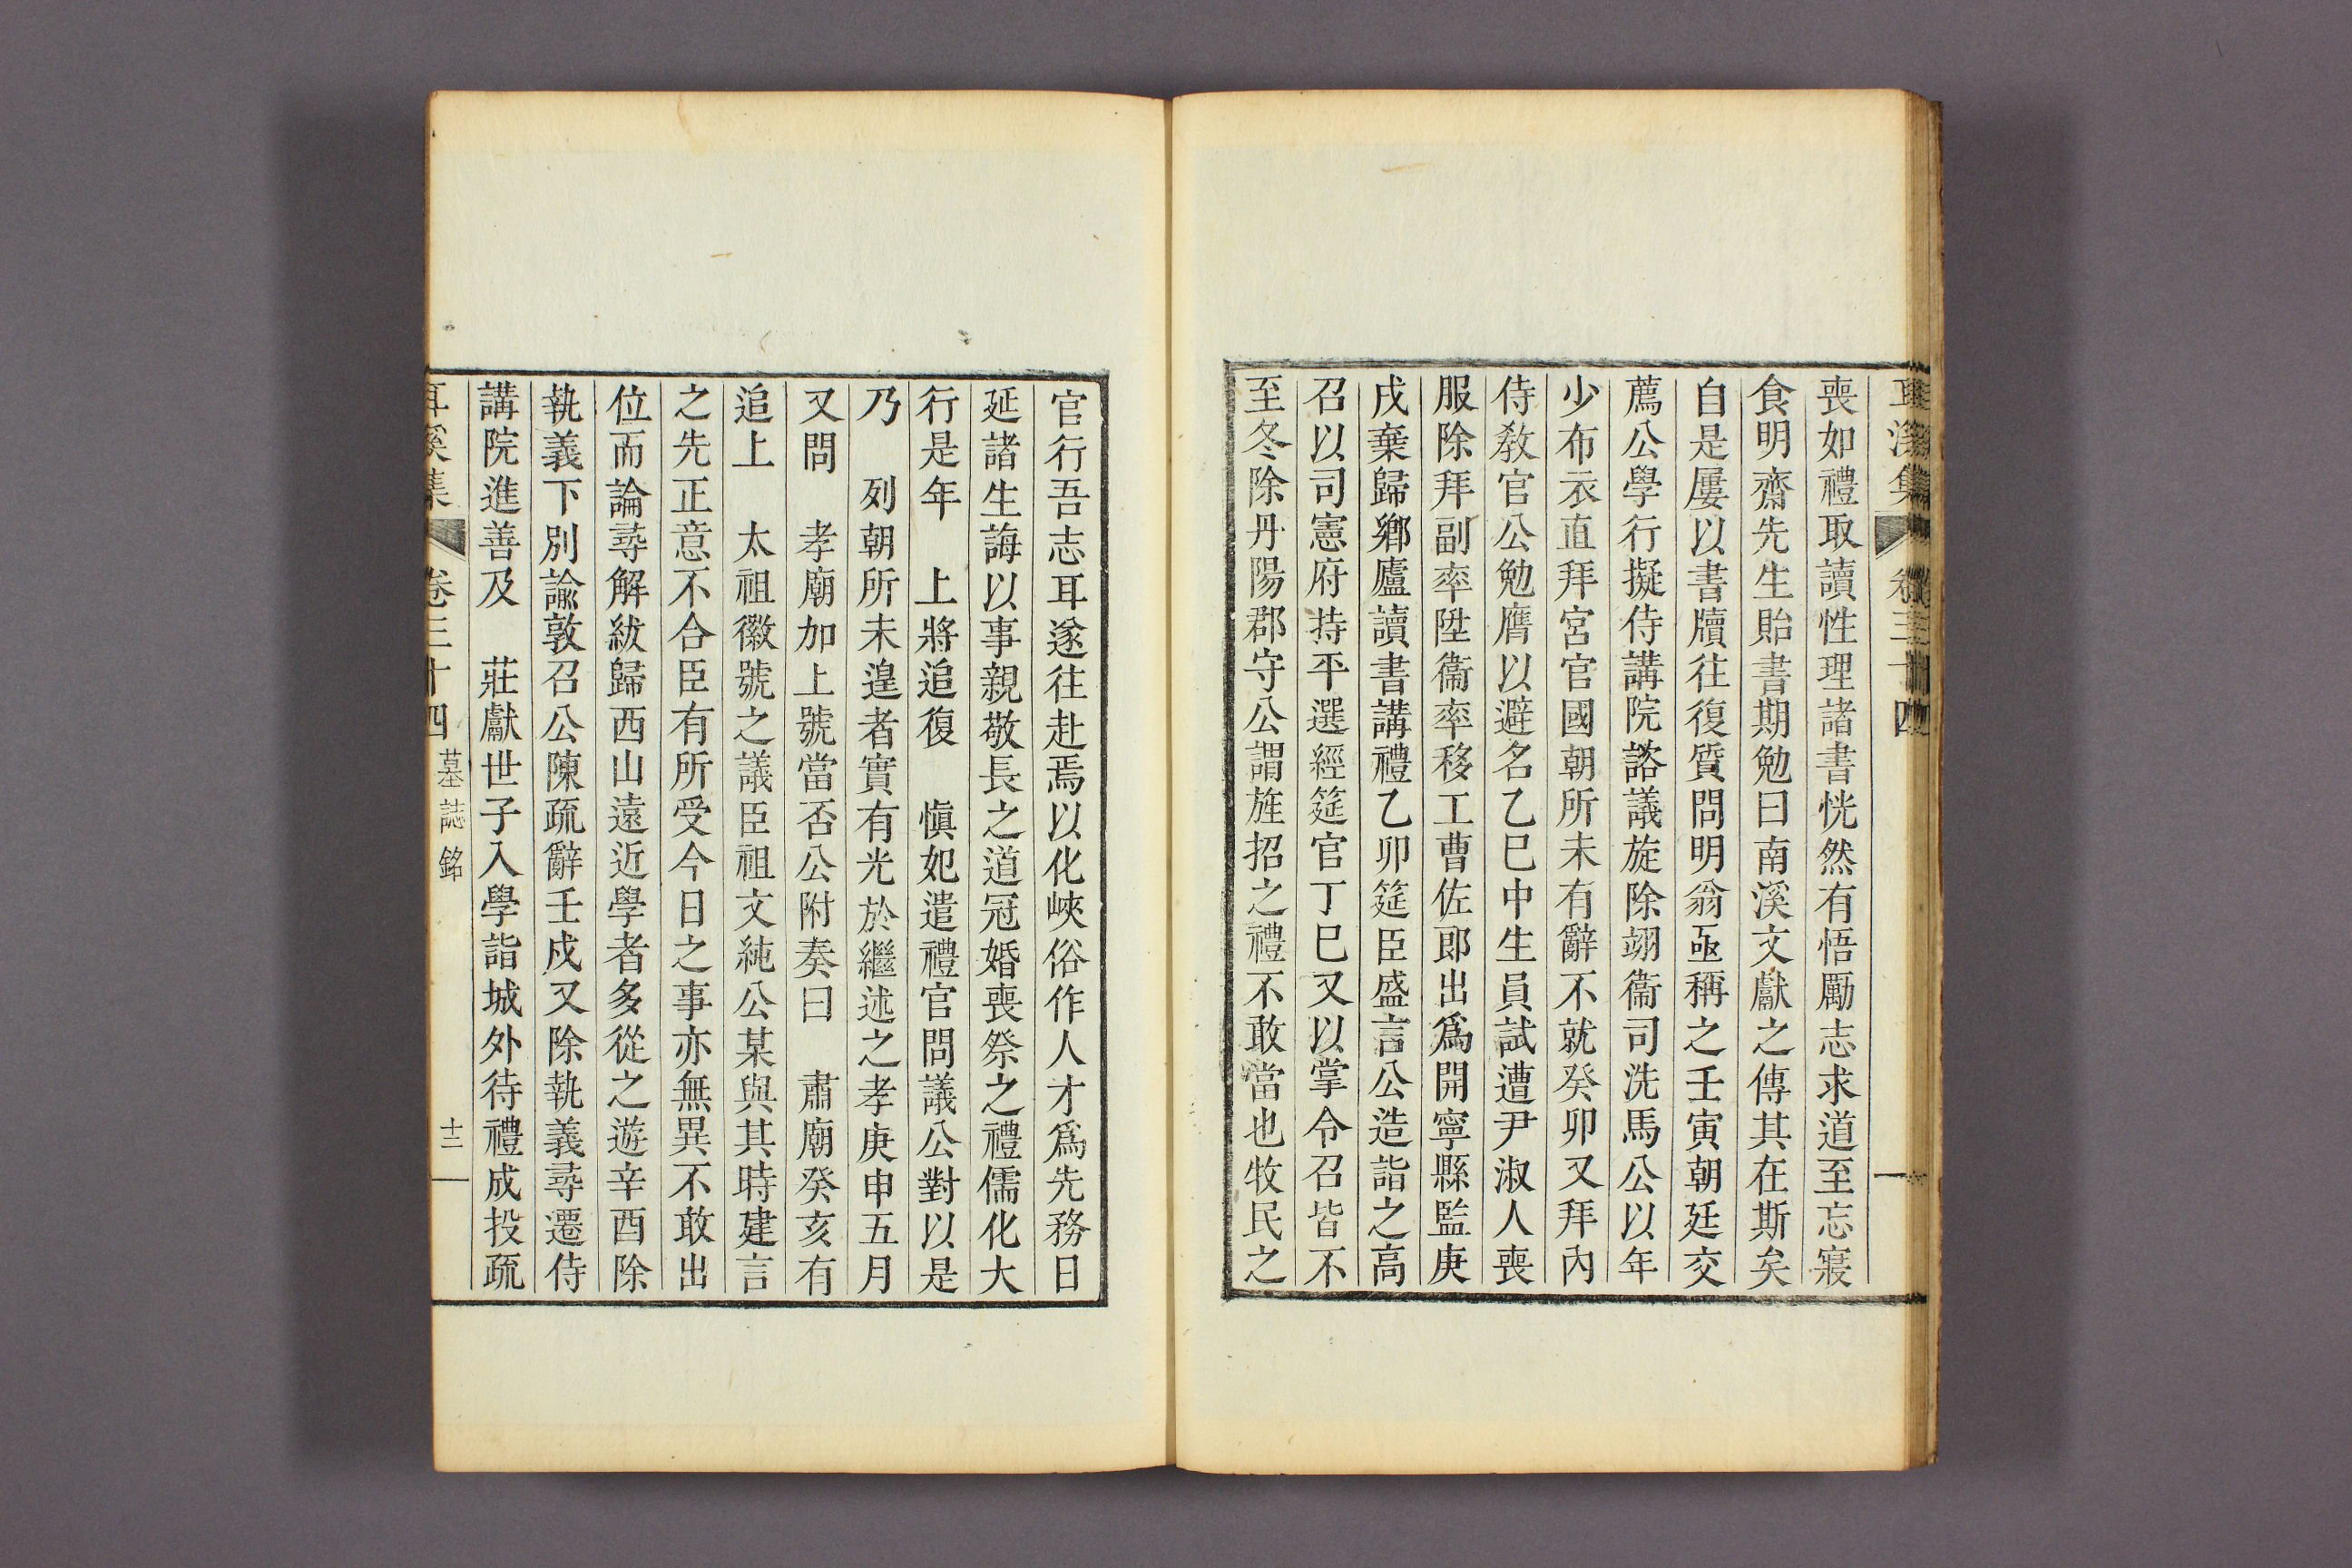 耳溪集 卷三十四
喪如禮取讀性理諸書恍然有悟勵志求道至忘寢
食明齋先生貽書期勉曰南溪文獻之傳其在斯矣
自是屢以書牘往復質問明翁亟稱之壬寅朝廷交
薦公學行擬侍講院諮議旋除翊衞司洗馬公以年
少布衣直拜宮官國朝所未有辭不就癸卯又拜內
侍敎官公勉膺以避名乙巳中生員試遭尹淑人喪
服除拜副率陞衞率移工曹佐郞出爲開寧縣監庚
戌棄歸鄕廬讀書講禮乙卯筵臣盛言公造詣之高
召以司憲府持平選經筵官丁巳又以掌令召皆不
至冬除丹陽郡守公謂旌招之禮不敢當也牧民之
官行吾志耳遂往赴焉以化峽俗作人才爲先務日
延諸生誨以事親敬長之道冠婚喪祭之禮儒化大
行是年 上將追復 愼妃遣禮官問議公對以是
乃 列朝所未遑者實有光於繼述之孝庚申五月
又問 孝廟加上號當否公附奏曰 肅廟癸亥有
追上 太祖徽號之議臣祖文純公某與其時建言
之先正意不合臣有所受今日之事亦無異不敢出
位而論尋解紱歸西山遠近學者多從之遊辛酉除
執義下別諭敦召公陳疏辭壬戌又除執義尋遷侍
講院進善及 莊獻世子入學詣城外待禮成投疏
耳溪集 卷三十四 墓誌銘 十二